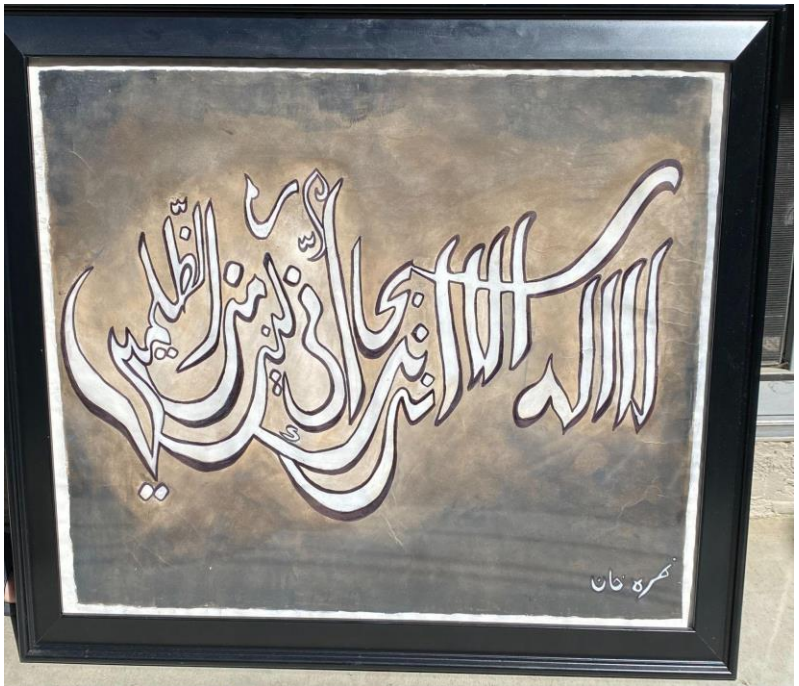 لا اله الا انت سبحنك انى كنت من الظلمين
خان